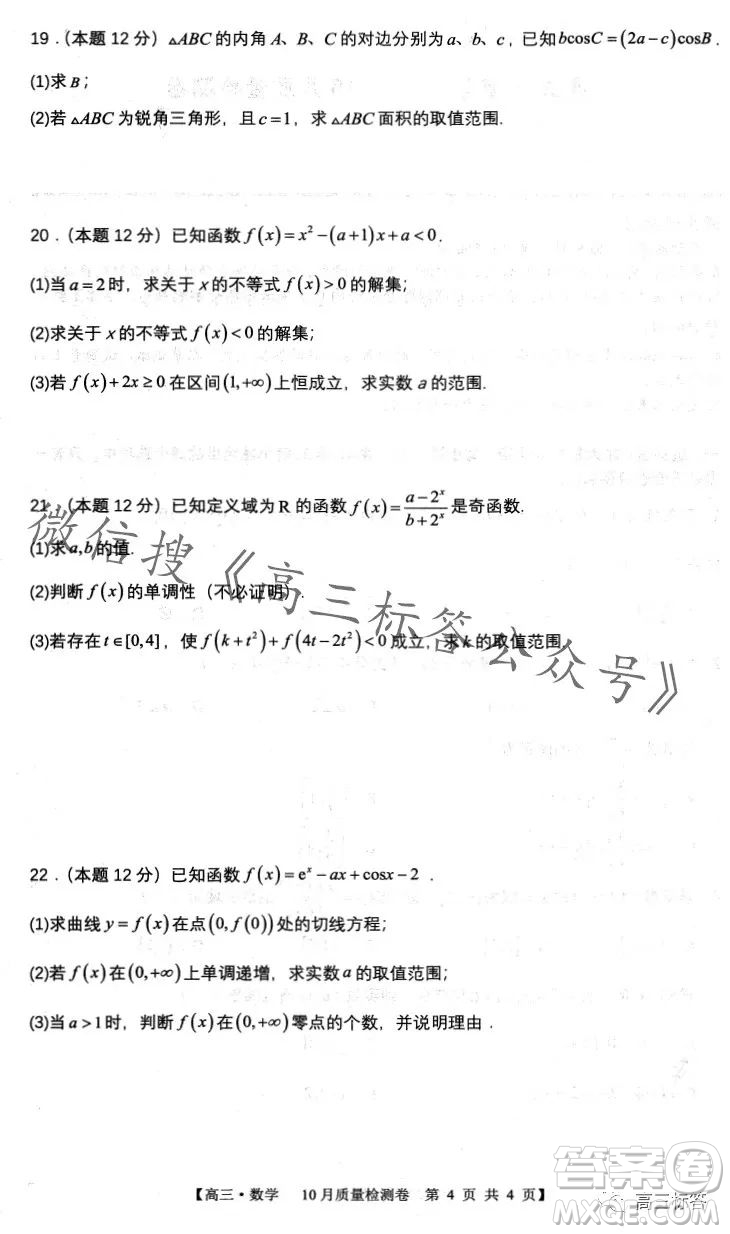 19．（本题 12 分）△ABC 的内角 A、B、C 的对边分别为 a、b、c，已知 bcosC=(2a−c)cosB．
(1)求 B；
(2)若 △ABC 为锐角三角形，且 c=1，求 △ABC 面积的取值范围.
20．（本题 12 分）已知函数 f(x)=x²−(a+1)x+a<0.
(1)当 a=2 时，求关于 x 的不等式 f(x)>0 的解集；
(2)求关于 x 的不等式 f(x)<0 的解集；
(3)若 f(x)+2x≥0 在区间 (1,+∞) 上恒成立，求实数 a 的范围.
21．（本题 12 分）已知定义域为 R 的函数 f(x)=(a−2ˣ)/(b+2ˣ) 是奇函数.
(1)求 a,b 的值.
(2)判断 f(x) 的单调性（不必证明）.
(3)若存在 t∈[0,4]，使 f(k+t²)+f(4t−2t²)<0 成立，求 k 的取值范围.
微信搜《高三标答公众号》
22．（本题 12 分）已知函数 f(x)=eˣ−ax+cosx−2．
(1)求曲线 y=f(x) 在点 (0,f(0)) 处的切线方程；
(2)若 f(x) 在 (0,+∞) 上单调递增，求实数 a 的取值范围；
(3)当 a>1 时，判断 f(x) 在 (0,+∞) 零点的个数，并说明理由．
【高三·数学 10 月质量检测卷 第 4 页 共 4 页】
高三标答
作业答案卷
WWW.ZUOYEDAAN.COM